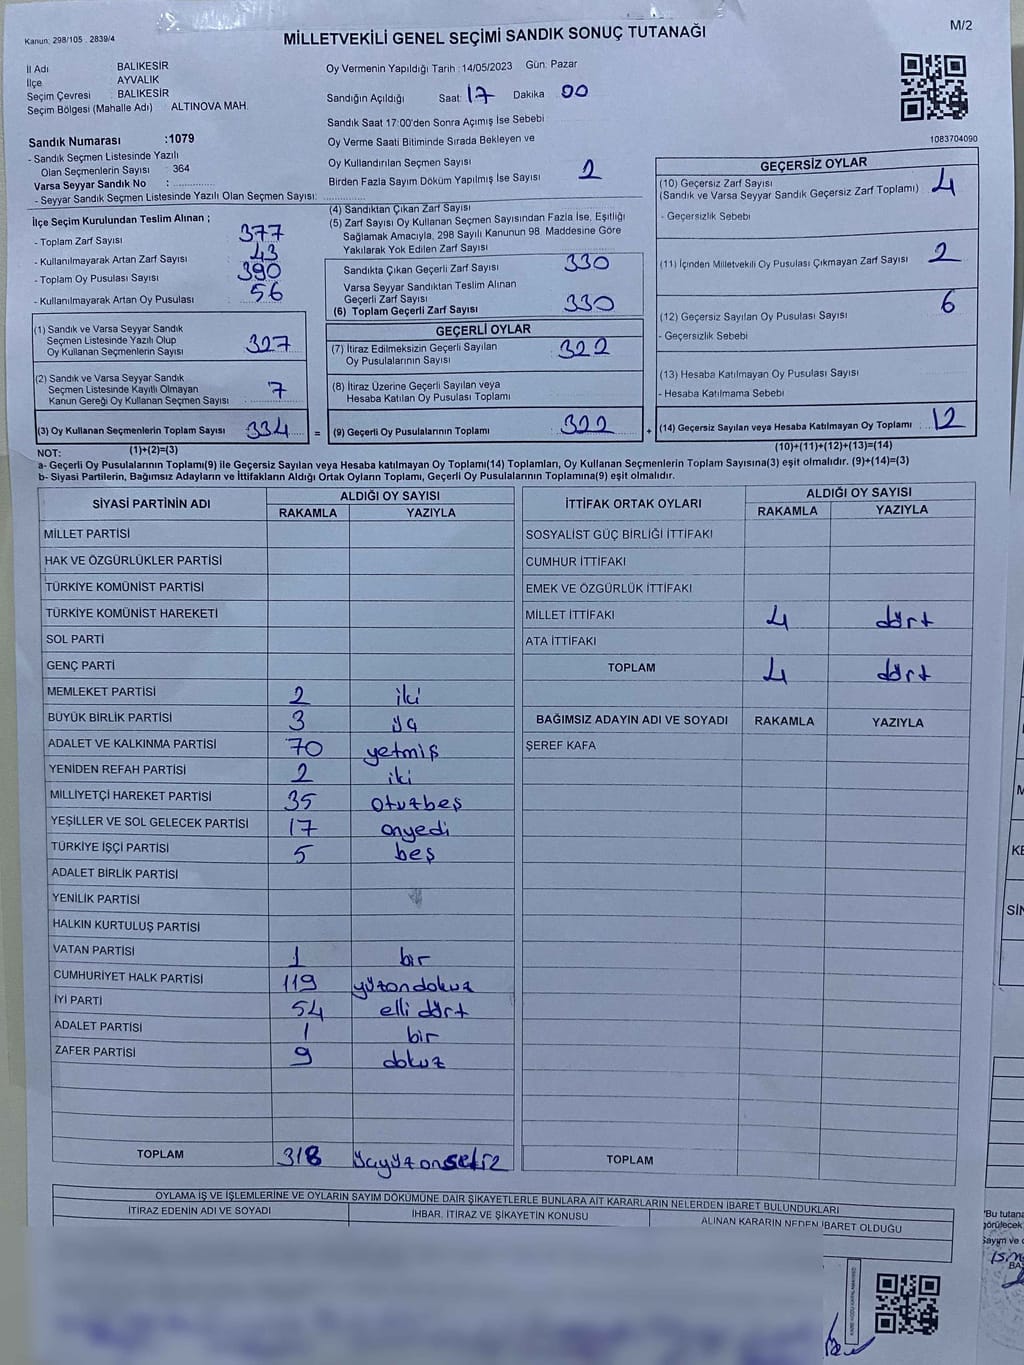 Kanun: 298/105 . 2839/4
MİLLETVEKİLİ GENEL SEÇİMİ SANDIK SONUÇ TUTANAĞI
M/2
İl Adı BALIKESİR
İlçe AYVALIK
Seçim Çevresi BALIKESİR
Seçim Bölgesi (Mahalle Adı) ALTINOVA MAH.
Sandık Numarası :1079
- Sandık Seçmen Listesinde Yazılı
Olan Seçmenlerin Sayısı : 364
Varsa Seyyar Sandık No :
- Seyyar Sandık Seçmen Listesinde Yazılı Olan Seçmen Sayısı:
Oy Vermenin Yapıldığı Tarih :14/05/2023 Gün: Pazar
Sandığın Açıldığı Saat: 17 Dakika 00
Sandık Saat 17:00'den Sonra Açımış İse Sebebi
Oy Verme Saati Bitiminde Sırada Bekleyen ve
Oy Kullandırılan Seçmen Sayısı
Birden Fazla Sayım Döküm Yapılmış İse Sayısı 2
1083704090
İlçe Seçim Kurulundan Teslim Alınan ;
- Toplam Zarf Sayısı : 377
- Kullanılmayarak Artan Zarf Sayısı : 43
- Toplam Oy Pusulası Sayısı : 390
- Kullanılmayarak Artan Oy Pusulası : 56
(1) Sandık ve Varsa Seyyar Sandık
Seçmen Listesinde Yazılı Olup
Oy Kullanan Seçmenlerin Sayısı 327
(2) Sandık ve Varsa Seyyar Sandık
Seçmen Listesinde Kayıtlı Olmayan
Kanun Gereği Oy Kullanan Seçmen Sayısı 7
(3) Oy Kullanan Seçmenlerin Toplam Sayısı 334 =
(1)+(2)=(3)
(4) Sandıktan Çıkan Zarf Sayısı
(5) Zarf Sayısı Oy Kullanan Seçmen Sayısından Fazla İse, Eşitliği
Sağlamak Amacıyla, 298 Sayılı Kanunun 98. Maddesine Göre
Yakılarak Yok Edilen Zarf Sayısı
Sandıkta Çıkan Geçerli Zarf Sayısı 330
Varsa Seyyar Sandıktan Teslim Alınan
Geçerli Zarf Sayısı
(6) Toplam Geçerli Zarf Sayısı 330
GEÇERLİ OYLAR
(7) İtiraz Edilmeksizin Geçerli Sayılan
Oy Pusulalarının Sayısı 322
(8) İtiraz Üzerine Geçerli Sayılan veya
Hesaba Katılan Oy Pusulası Toplamı
(9) Geçerli Oy Pusulalarının Toplamı 322 +
GEÇERSİZ OYLAR
(10) Geçersiz Zarf Sayısı 4
(Sandık ve Varsa Seyyar Sandık Geçersiz Zarf Toplamı)
- Geçersizlik Sebebi
(11) İçinden Milletvekili Oy Pusulası Çıkmayan Zarf Sayısı 2
(12) Geçersiz Sayılan Oy Pusulası Sayısı 6
- Geçersizlik Sebebi
(13) Hesaba Katılmayan Oy Pusulası Sayısı
- Hesaba Katılmama Sebebi
(14) Geçersiz Sayılan veya Hesaba Katılmayan Oy Toplamı 12
(10)+(11)+(12)+(13)=(14)
NOT:
a- Geçerli Oy Pusulalarının Toplamı(9) ile Geçersiz Sayılan veya Hesaba katılmayan Oy Toplamı(14) Toplamları, Oy Kullanan Seçmenlerin Toplam Sayısına(3) eşit olmalıdır. (9)+(14)=(3)
b- Siyasi Partilerin, Bağımsız Adayların ve İttifakların Aldığı Ortak Oyların Toplamı, Geçerli Oy Pusulalarının Toplamına(9) eşit olmalıdır.
SİYASİ PARTİNİN ADI ALDIĞI OY SAYISI
RAKAMLA YAZIYLA
MİLLET PARTİSİ
HAK VE ÖZGÜRLÜKLER PARTİSİ
TÜRKİYE KOMÜNİST PARTİSİ
TÜRKİYE KOMÜNİST HAREKETİ
SOL PARTİ
GENÇ PARTİ
MEMLEKET PARTİSİ 2 iki
BÜYÜK BİRLİK PARTİSİ 3 üç
ADALET VE KALKINMA PARTİSİ 70 yetmiş
YENİDEN REFAH PARTİSİ 2 iki
MİLLİYETÇİ HAREKET PARTİSİ 35 otuzbeş
YEŞİLLER VE SOL GELECEK PARTİSİ 17 onyedi
TÜRKİYE İŞÇİ PARTİSİ 5 beş
ADALET BİRLİK PARTİSİ
YENİLİK PARTİSİ
HALKIN KURTULUŞ PARTİSİ
VATAN PARTİSİ 1 bir
CUMHURİYET HALK PARTİSİ 119 yüzondokuz
İYİ PARTİ 54 elli dört
ADALET PARTİSİ 1 bir
ZAFER PARTİSİ 9 dokuz
TOPLAM 318 üçyüzonsekiz
İTTİFAK ORTAK OYLARI ALDIĞI OY SAYISI
RAKAMLA YAZIYLA
SOSYALİST GÜÇ BİRLİĞİ İTTİFAKI
CUMHUR İTTİFAKI
EMEK VE ÖZGÜRLÜK İTTİFAKI
MİLLET İTTİFAKI 4 dört
ATA İTTİFAKI
TOPLAM 4 dört
BAĞIMSIZ ADAYIN ADI VE SOYADI RAKAMLA YAZIYLA
ŞEREF KAFA
TOPLAM
OYLAMA İŞ VE İŞLEMLERİNE VE OYLARIN SAYIM DÖKÜMÜNE DAİR ŞİKAYETLERLE BUNLARA AİT KARARLARIN NELERDEN İBARET BULUNDUKLARI
İTİRAZ EDENİN ADI VE SOYADI İHBAR, İTİRAZ VE ŞİKAYETİN KONUSU ALINAN KARARIN NEDEN İBARET OLDUĞU
"Bu tutana
görülecek
Sayım ve